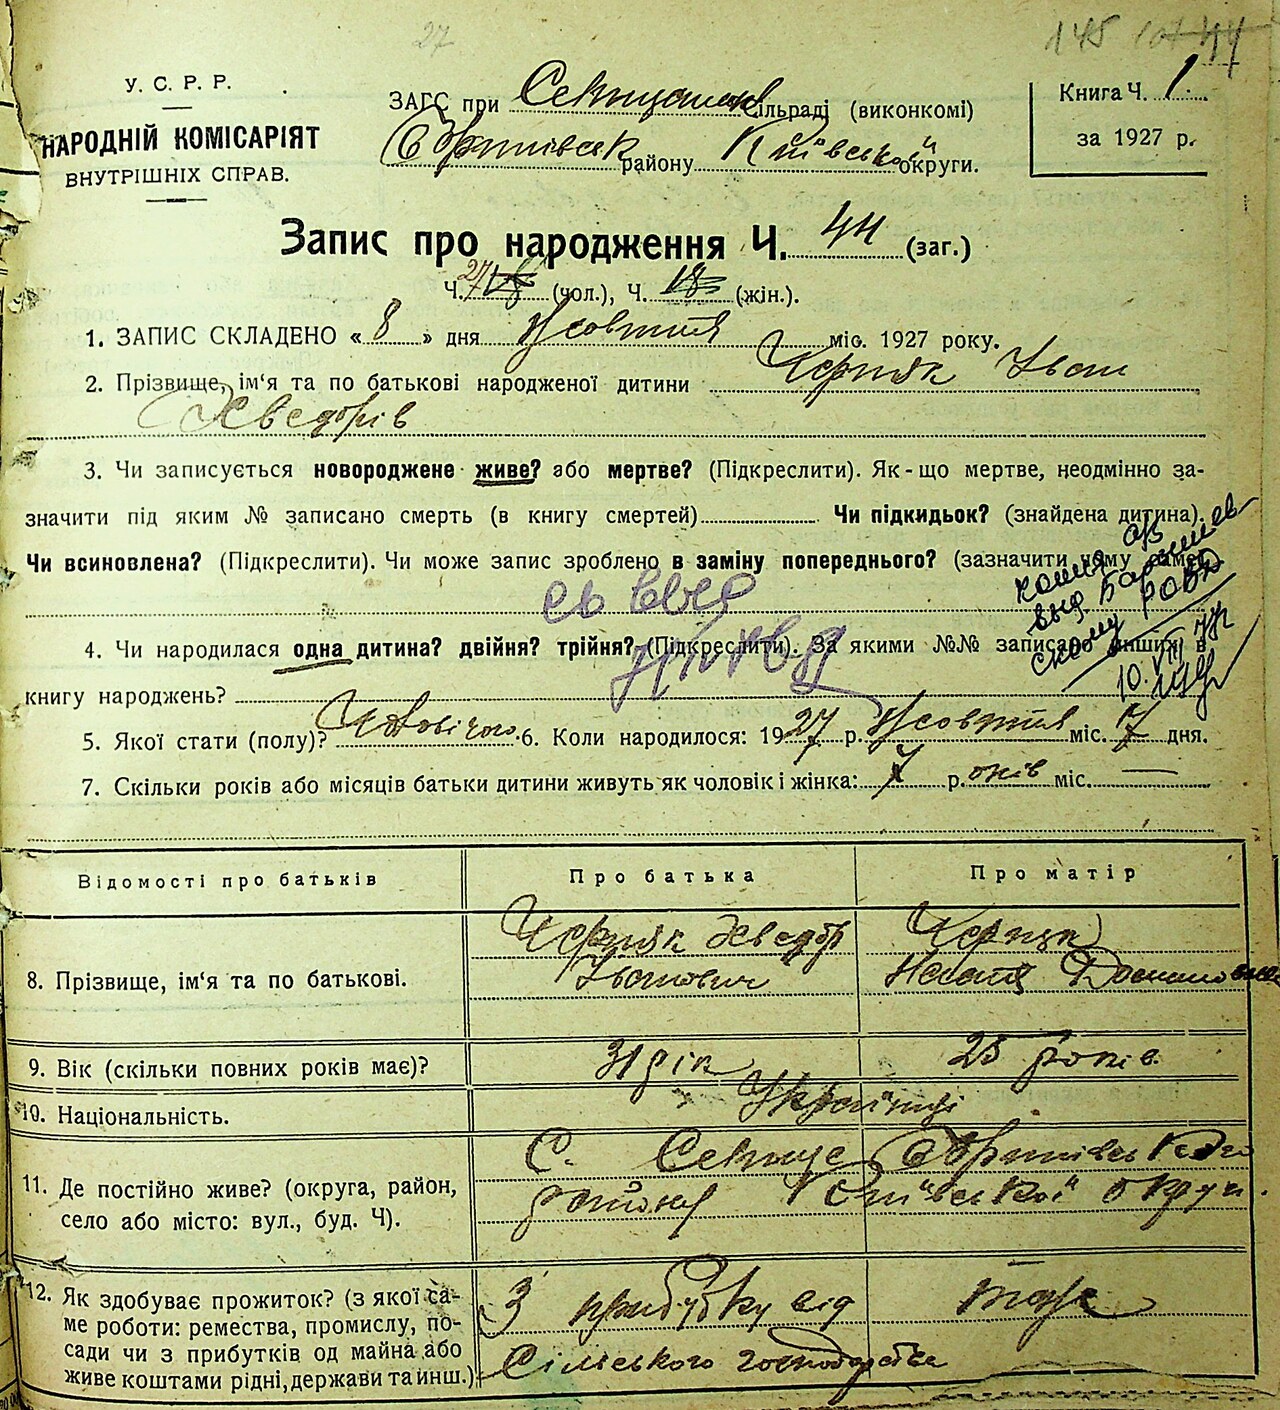 27
145
У. С. Р. Р.
НАРОДНІЙ КОМІСАРІЯТ
ВНУТРІШНІХ СПРАВ.
ЗАГС при сільраді (виконкомі)
району Київської округи.
Книга Ч. 1
за 1927 р.
Запис про народження Ч. 44 (заг.)
Ч. 27 18 (чол.), Ч. 18 (жін.).
1. ЗАПИС СКЛАДЕНО « 8 » дня Жовтня міс. 1927 року.
2. Прізвище, ім‘я та по батькові народженої дитини Черняк Іван
Хведорів
3. Чи записується новороджене живе? або мертве? (Підкреслити). Як-що мертве, неодмінно за-
значити під яким № записано смерть (в книгу смертей) Чи підкидьок? (знайдена дитина).
Чи всиновлена? (Підкреслити). Чи може запис зроблено в заміну попереднього? (зазначити чому
копия
выд. Барышев-
скому РОВД
10.VIII
4. Чи народилася одна дитина? двійня? трійня? (Підкреслити). За якими №№ записано инших в
книгу народжень?
5. Якої стати (полу)? Чоловічого 6. Коли народилося: 1927 р. Жовтня міс. 7 дня.
7. Скільки років або місяців батьки дитини живуть як чоловік і жінка: 7 р. оків міс. —
Відомості про батьків
Про батька
Про матір
8. Прізвище, ім‘я та по батькові.
Черняк Хведор
Іванович
Черняк
9. Вік (скільки повних років має)?
31 рік
25 років
10. Національність.
Українці
11. Де постійно живе? (округа, район,
село або місто: вул., буд. Ч).
С. Селище
району Київської округи.
12. Як здобуває прожиток? (з якої са-
ме роботи: ремества, промислу, по-
сади чи з прибутків од майна або
живе коштами рідні, держави та инш.)
З прибутку від
Сільського господарства
теж